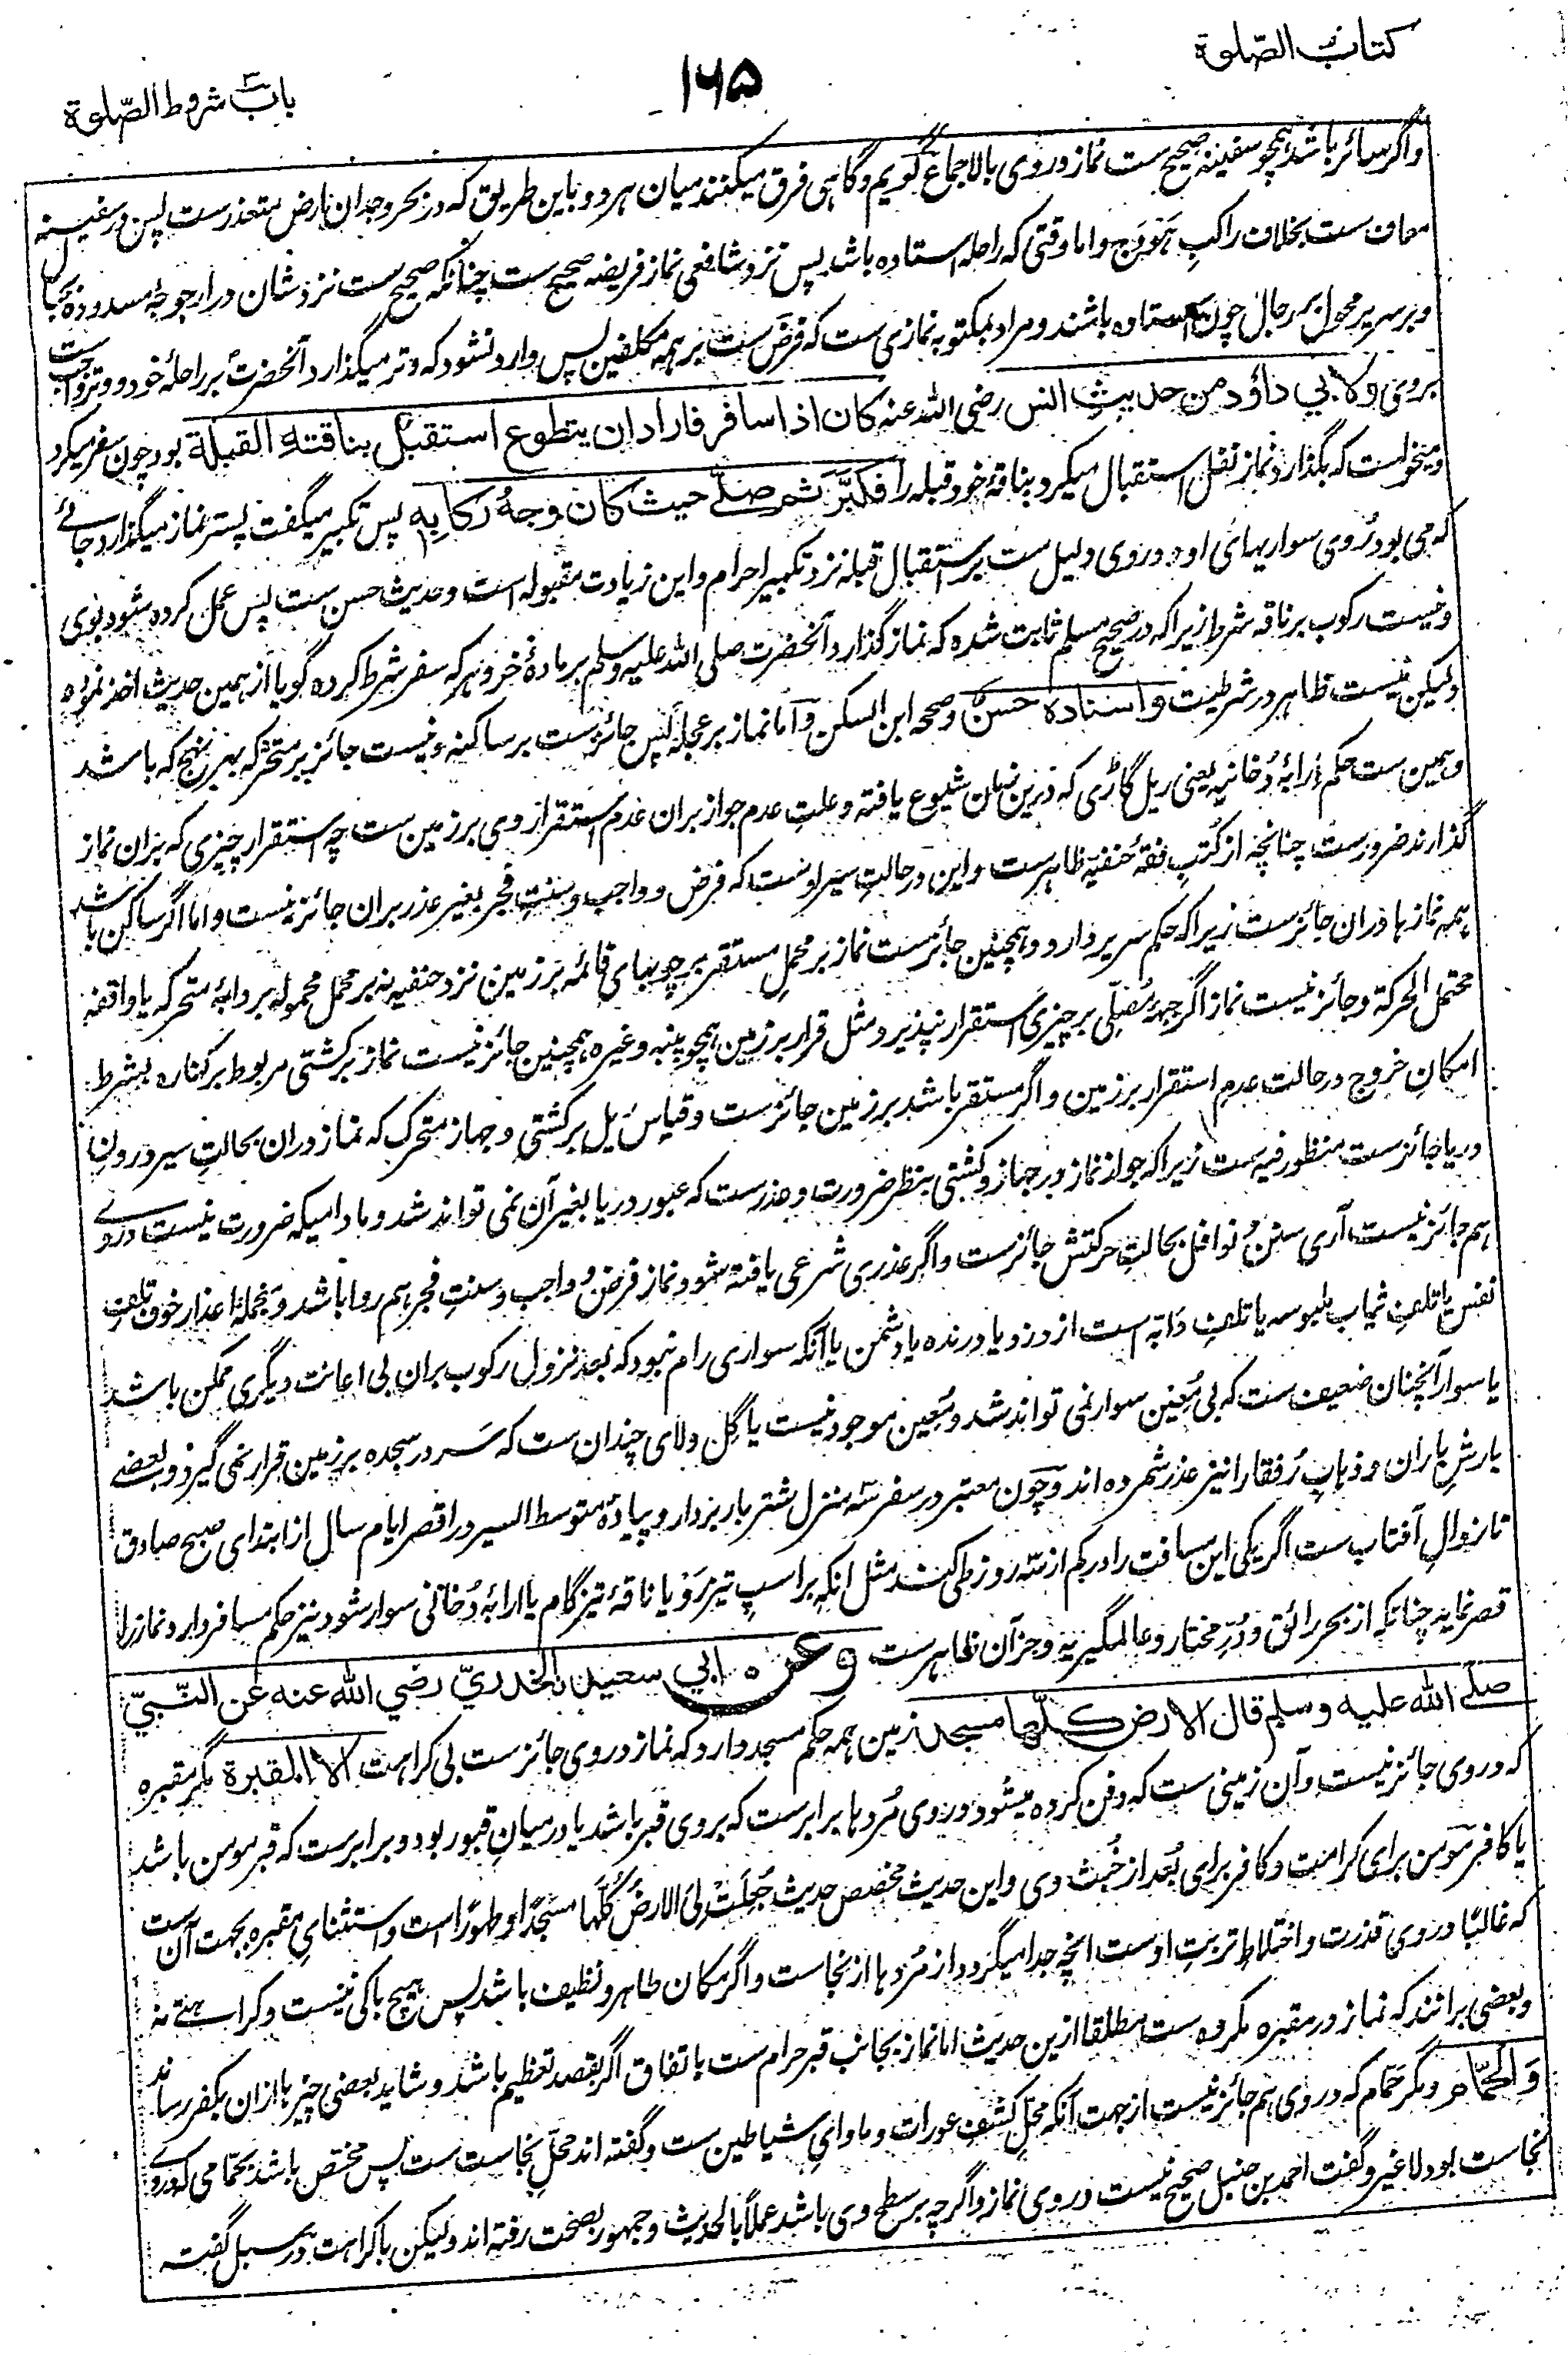 کتاب الصّلوة
۱۶۵
باب شروط الصّلوة
واگر سائر باشد ہمچو سفینہ صحیح ست نماز در وی بالاجماع گویم و گاہی فرق میکنند میان ہر دو باین طریق کہ در بحر وجدان ارض متعذر ست پس در سفینہ
معاف ست بخلاف راکبِ ہودج و اما وقتی کہ راحلہ استادہ باشد پس نزد شافعی نماز فریضہ صحیح ست چنانکہ صحیح ست نزد شان در ارجوحۂ مسدودہ بحبال
و بر سریر محمول بر رجال چون استادہ باشند و مراد بمکتوبہ نمازی ست کہ فرض ست بر ہمہ مکلفین پس وارد نشود کہ وتر میگذارد آنحضرت بر راحلۂ خود و وتر واجب ست
بروی ولابي داؤد من حديث انس رضي الله عنه كان اذا سافر فاراد ان يتطوع استقبل بناقته القبلة بود چون سفر میکرد
و میخواست کہ بگذارد نماز نفل استقبال میکرد بناقۂ خود قبلہ را فكبَّر ثم صلّے حيث كان وجهُ ركابِه پس تکبیر میگفت پستر نماز میگذارد جائے
کہ می بود رُوی سواریہای او، و دروی دلیل ست بر استقبال قبلہ نزد تکبیر احرام و این زیادت مقبولہ است و حدیث حسن ست پس عمل کردہ شود بوی
و نیست رکوب بر ناقہ شرط زیرا کہ در صحیح مسلم ثابت شدہ کہ نماز گذارد آنحضرت صلی اللہ علیہ وسلم بر مادۂ خر و ہر کہ سفر شرط کردہ گویا از ہمین حدیث اخذ نمودہ
ولیکن نیست ظاہر در شرطیت واسناده حسنٌ و صححہ ابن السکن و اما نماز بر عجلہ پس جائز ست بر ساکنہ و نیست جائز بر متحرکہ بہر نہج کہ باشد
و ہمین ست حکم ارابۂ دُخانیہ یعنی ریل گاڑی کہ درین زمان شیوع یافتہ و علتِ عدم جواز بران عدم استقرار وی بر زمین ست چہ استقرار چیزی کہ بران نماز
گذارند ضرور ست چنانچہ از کُتبِ فقۂ حنفیہ ظاہر ست و این در حالتِ سیر اوست کہ فرض و واجب و سنتِ فجر بغیر عذر بران جائز نیست و اما اگر ساکن باشد
ہمہ نماز ہا دران جائز ست زیرا کہ حکم سریر دارد و ہمچنین جائز ست نماز بر محملِ مستقر بر چوبہای قائمہ بر زمین نزد حنفیہ نہ بر محمل محمولہ بر دابۂ متحرکہ یا واقفہ
محتمل الحرکۃ و جائز نیست نماز اگر جبہۂ مُصلّی بر چیزی استقرار نپذیرد مثل قرار بر زمین ہمچو پنبہ و غیرہ ہمچنین جائز نیست نماز بر کشتی مربوط بر کنارہ بشرط
امکانِ خروج در حالت عدمِ استقرار بر زمین و اگر مستقر باشد بر زمین جائز ست و قیاس ریل بر کشتی و جہاز متحرک کہ نماز دران بحالتِ سیر درون
دریا جائز ست منظور فیہ ست زیرا کہ جواز نماز در جہاز و کشتی بنظر ضرورت و عذر ست کہ عبور دریا بغیر آن نمی تواند شد و مادامیکہ ضرورت نیست دروے
ہم جائز نیست آری سنن و نوافل بحالتِ حرکتش جائز ست و اگر عذری شرعی یافتہ شود نماز فرض و واجب و سنتِ فجر ہم روا باشد و منجملۂ اعذار خوف تلفِ
نفس یا تلفِ ثیاب ملبوسہ یا تلفِ دابّہ است از دزد یا درندہ یا دشمن یا آنکہ سواری رام نبود کہ بعد نزول رکوب بران بی اعانت دیگری ممکن باشد
یا سوار آنچنان ضعیف ست کہ بی مُعین سوار نمی تواند شد و مُعین موجود نیست یا گِل و لای چندان ست کہ سر در سجدہ بر زمین قرار نمی گیرد و بعضے
بارشِ باران و ذہابِ رُفقا را نیز عذر شمردہ اند و چون معتبر در سفر سہ منزل شتر باربردار و پیادۂ متوسط السیر در اقصر ایام سال از ابتدای صبح صادق
تا زوالِ آفتاب ست اگر یکی این مسافت را در کم از سہ روز طی کند مثل آنکہ بر اسپِ تیز رَو یا ناقۂ تیز گام یا ارابۂ دُخانی سوار شود نیز حکم مسافر دارد و نماز را
قصر نماید چنانکہ از بحر رائق و دُرِّ مختار و عالمگیریہ و جز آن ظاہر ست وعن ابي سعيد الخدريّ رضي الله عنه عن النّبيّ
صلّے الله عليه وسلم قال الارض كلّها مسجد زمین ہمہ حکم مسجد دارد کہ نماز در وی جائز ست بی کراہت الا المقبرة مگر مقبرہ
کہ در وی جائز نیست و آن زمینی ست کہ دفن کردہ میشود در وی مُردہا برابر ست کہ بروی قبر باشد یا درمیانِ قبور بود و برابر ست کہ قبر مومن باشد
یا کافر مومن برای کرامت و کافر برای بُعد از خُبث وی و این حدیث مخصص حدیث جُعِلَتْ لِیَ الارضُ کُلُّہا مسجدًا و طہورًا است و استثنایِ مقبرہ بجہت آن ست
کہ غالبًا دروی قذرت و اختلاطِ تربتِ اوست انچہ جدا میگردد از مُردہا از نجاست و اگر مکان طاہر و نظیف باشد پس ہیچ باکی نیست و کراہتے نہ
و بعضی برانند کہ نماز در مقبرہ مکروہ ست مطلقا ازین حدیث اما نماز بجانب قبر حرام ست باتفاق اگر بقصد تعظیم باشد و شاید بعضی چیزہا ازان بکفر رساند
وَالحمّام و مگر حمّام کہ دروی ہم جائز نیست از جہت آنکہ محلِ کشفِ عورات و ماوایِ شیاطین ست و گفتہ اند محلِ نجاست ست پس مختص باشد بحمّامی کہ دروے
نجاست بود لا غیر و گفت احمد بن حنبل صحیح نیست در وی نماز و اگرچہ بر سطح وی باشد عملاً بالحدیث و جمہور بصحت رفتہ اند ولیکن با کراہت و در سبل گفتہ